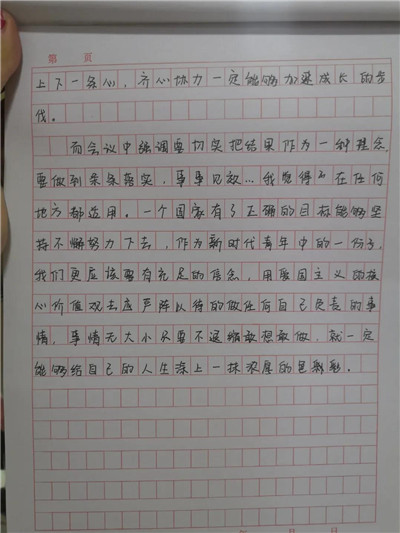 第 页
上下一条心，齐心协力一定能够加速成长的步
伐。
而会议中强调要切实把结果作为一种理念
要做到条条落实，事事见效...我觉得这在任何
地方都适用。一个国家有了正确的目标能够坚
持不懈努力下去，作为新时代青年中的一份子，
我们更应该要有充足的信念，用爱国主义的核
心价值观去应严阵以待的做任何自己负责的事
情，事情无大小只要不退缩敢想敢做，就一定
能够给自己的人生添上一抹浓厚的色彩。
年 月 日